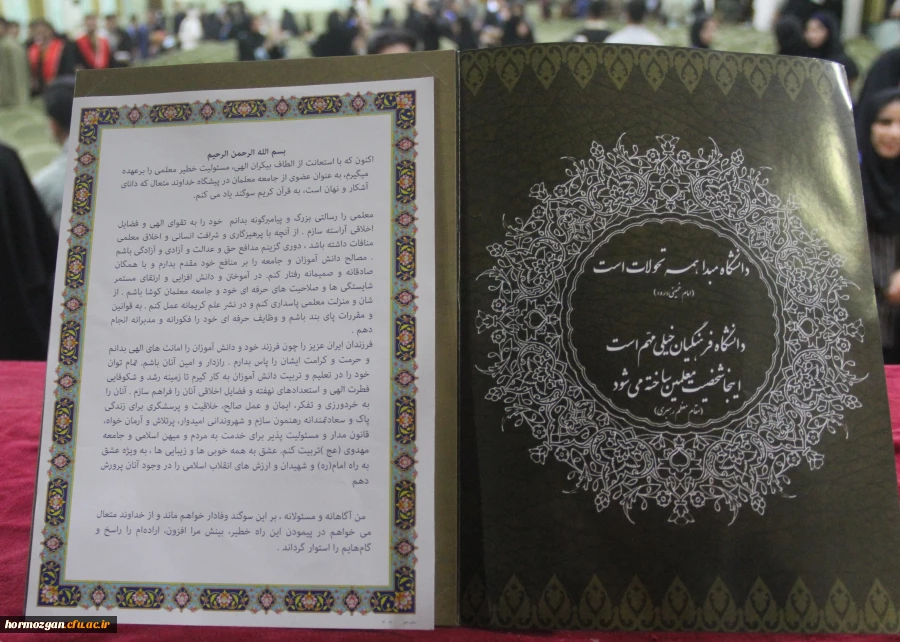 بسم الله الرحمن الرحیم
اکنون که با استعانت از الطاف بیکران الهی، مسئولیت خطیر معلمی را برعهده
میگیرم، به عنوان عضوی از جامعه معلمان در پیشگاه خداوند متعال که دانای
آشکار و نهان است، به قرآن کریم سوگند یاد می کنم.
معلمی را رسالتی بزرگ و پیامبرگونه بدانم خود را به تقوای الهی و فضایل
اخلاقی آراسته سازم . از آنچه با پرهیزگاری و شرافت انسانی و اخلاق معلمی
منافات داشته باشد ، دوری گزینم مدافع حق و عدالت و آزادی و آزادگی باشم
. مصالح دانش آموزان و جامعه را بر منافع خود مقدم بدارم و با همگان
صادقانه و صمیمانه رفتار کنم. در آموختن و دانش افزایی و ارتقای مستمر
شایستگی ها و صلاحیت های حرفه ای خود و جامعه معلمان کوشا باشم . از
شان و منزلت معلمی پاسداری کنم و در نشر علم کریمانه عمل کنم . به قوانین
و مقررات پای بند باشم و وظایف حرفه ای خود را فکورانه و مدبرانه انجام
دهم .
فرزندان ایران عزیز را چون فرزند خود و دانش آموزان را امانت های الهی بدانم
و حرمت و کرامت ایشان را پاس بدارم . رازدار و امین آنان باشم. تمام توان
خود را در تعلیم و تربیت دانش آموزان به کار گیرم تا زمینه رشد و شکوفایی
فطرت الهی و استعدادهای نهفته و فضایل اخلاقی آنان را فراهم سازم . آنان را
به خردورزی و تفکر، ایمان و عمل صالح، خلاقیت و پرسشگری برای زندگی
پاک و سعادتمندانه رهنمون سازم و شهروندانی امیدوار، پرتلاش و آرمان خواه،
قانون مدار و مسئولیت پذیر برای خدمت به مردم و میهن اسلامی و جامعه
مهدوی (عج )تربیت کنم. عشق به همه خوبی ها و زیبایی ها ، به ویژه عشق
به راه امام(ره) و شهیدان و ارزش های انقلاب اسلامی را در وجود آنان پرورش
دهم
من آگاهانه و مسئولانه ، بر این سوگند وفادار خواهم ماند و از خداوند متعال
می خواهم در پیمودن این راه خطیر، بینش مرا افزون، اراده‌ام را راسخ و
گام‌هایم را استوار گرداند .
دانشگاه مبدا همه تحولات است
دانشگاه فرهنگیان خیلی مهم است
اینجا شخصیت معلمین ساخته می شود
(مقام معظم رهبری)
hormozgan.cfu.ac.ir